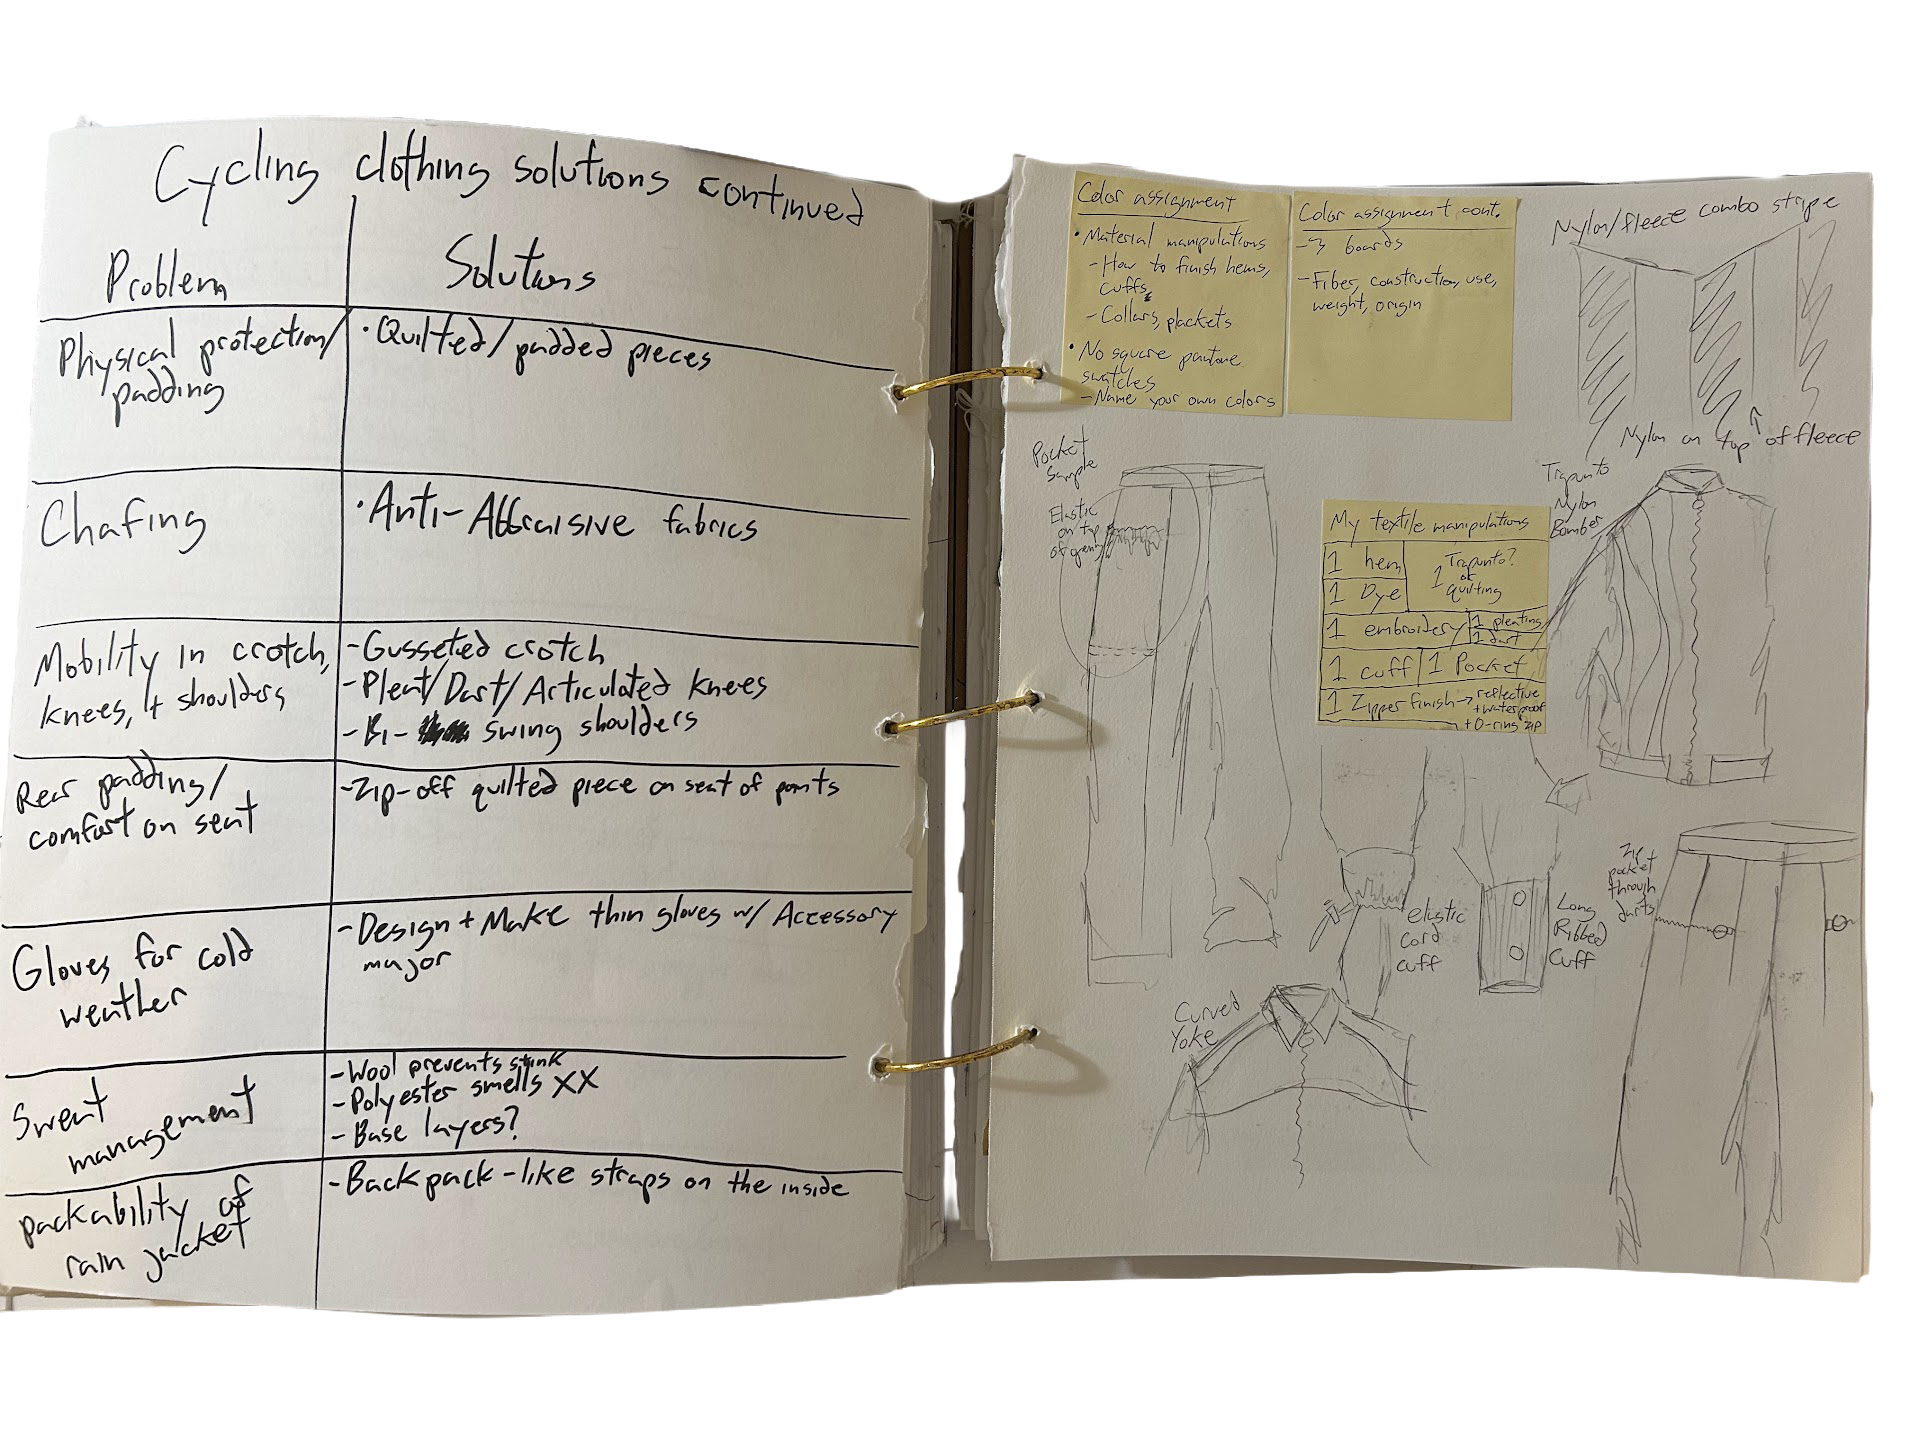 Cycling clothing solutions continued
Problem
Solutions
Physical protection/
padding
• Quilted/padded pieces
Chafing
• Anti-Abbraisive fabrics
Mobility in crotch,
knees, + shoulders
- Gusseted crotch
- Pleat/Dart/Articulated knees
- Bi- swing shoulders
Rear padding/
comfort on seat
- Zip-off quilted piece on seat of pants
Gloves for cold
weather
- Design + Make thin gloves w/ Accessory
major
Sweat
management
- Wool prevents stink
- Polyester smells XX
- Base layers?
packability of
rain jacket
- Backpack-like straps on the inside
Color assignment
• Material manipulations
- How to finish hems,
cuffs,
- Collars, plackets
• No square pantone
swatches
- Name your own colors
Color assignment cont.
- 3 boards
- Fiber, construction, use,
weight, origin
Nylon/fleece combo stripe
Nylon on top of fleece
Pocket
Sample
Elastic
on top
of
Trapunto
Nylon
Bomber
My textile manipulations
1 hem
1 Dye
1 Trapunto?
or
quilting
1 embroidery
1 pleating
1 dart
1 cuff
1 Pocket
1 Zipper finish → reflective
+ waterproof
+ O-ring zip
elastic
cord
cuff
Long
Ribbed
Cuff
Zip
pocket
through
darts
Curved
Yoke